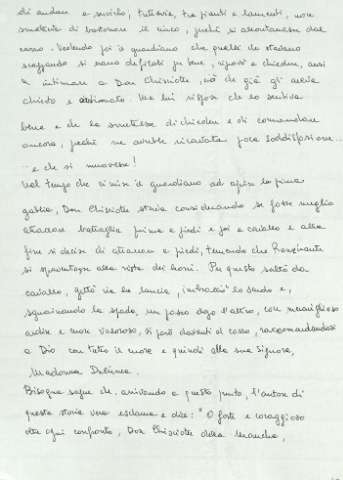 di andare a suicidio, tuttavia, tra pianti e lamenti, non
smetteva di bastonare il ciuco, perché si allontanasse dal
carro. Vedendo poi il guardiano che quelli che stavano
scappando si erano defilati per bene, riprovò a chiedere, anzi
a intimare a Don Chisciotte, ciò che già gli aveva
chiesto e intimato. Ma lui rispose che lo sentiva
bene e che la smettesse di chiedere e di comandare
ancora, perché ne avrebbe ricavata poca soddisfazione...
.. e che si muovesse!
Nel tempo che ci mise il guardiano ad aprire la prima
gabbia, Don Chisciotte stava considerando se fosse meglio
attaccare battaglia prima a piedi e poi a cavallo e alla
fine si decise di attaccare a piedi, temendo che Ronzinante
si spaventasse alla vista dei leoni. Per questo saltò da
cavallo, gettò via la lancia, imbracciò lo scudo e,
sguainando la spada, un passo dopo l'altro, con meraviglioso
ardire e cuore valoroso, si portò davanti al carro, raccomandandosi
a Dio con tutto il cuore e quindi alla sua signora,
Madonna Dulcinea.
Bisogna sapere che, arrivando a questo punto, l'autore di
questa storia vera esclama e dice: "O forte e coraggioso
oltre ogni confronto, Don Chisciotte della Mancha,